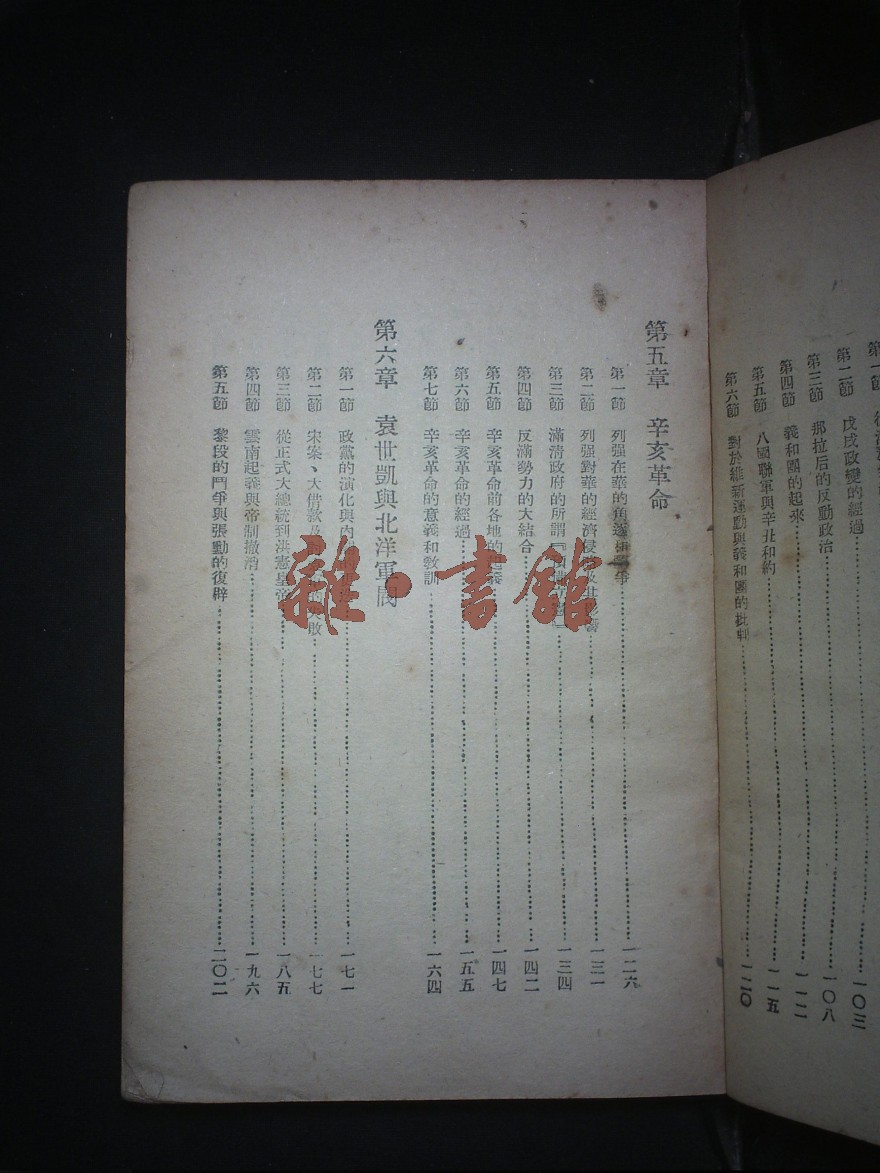 第一節
第二節 戊戌政變的經過 一〇三
第三節 那拉后的反動政治 一〇八
第四節 義和團的起來 一一二
第五節 八國聯軍與辛丑和約 一一五
第六節 對於維新運動與義和團的批判 一二〇
第五章 辛亥革命
第一節 列强在華的角逐 爭 一二六
第二節 列强對華的經濟 一三一
第三節 滿清政府的所謂『 』 一三四
第四節 反滿勢力的大結合 一四二
第五節 辛亥革命前各地的起義 一四七
第六節 辛亥革命的經過 一五五
第七節 辛亥革命的意義和敎訓 一六四
第六章 袁世凱與北洋軍閥
第一節 政黨的演化與內 一七一
第二節 宋案、大借款及 失敗 一七七
第三節 從正式大總統到洪憲皇帝 一八五
第四節 雲南起義與帝制撤消 一九六
第五節 黎段的鬥爭與張勳的復辟 二〇二
雜·書館